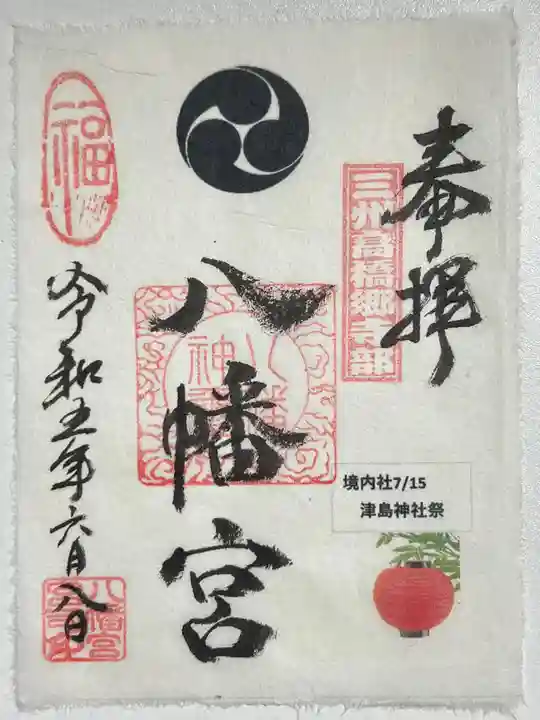 奉拝
三州高橋郷寺部
八幡宮
福
令和五年六月八日
八幡宮
境内社7/15
津島神社祭